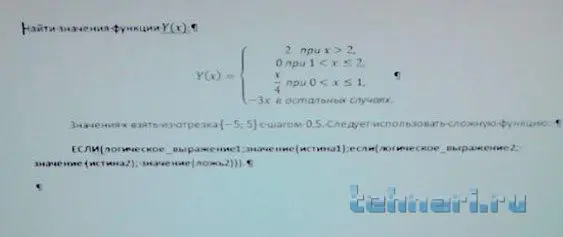 Найти значения функции Y(x).¶
2 при x > 2,
0 при 1 < x ≤ 2,
Y(x) = { x/4 при 0 < x ≤ 1, ¶
−3x в остальных случаях.
Значения x взять из отрезка [−5; 5] с шагом 0,5. Следует использовать сложную функцию: ¶
ЕСЛИ(логическое_выражение1;значение(истина1);если(логическое_выражение2;
значение (истина2); значение(ложь2))). ¶
¶
tehnari.ru